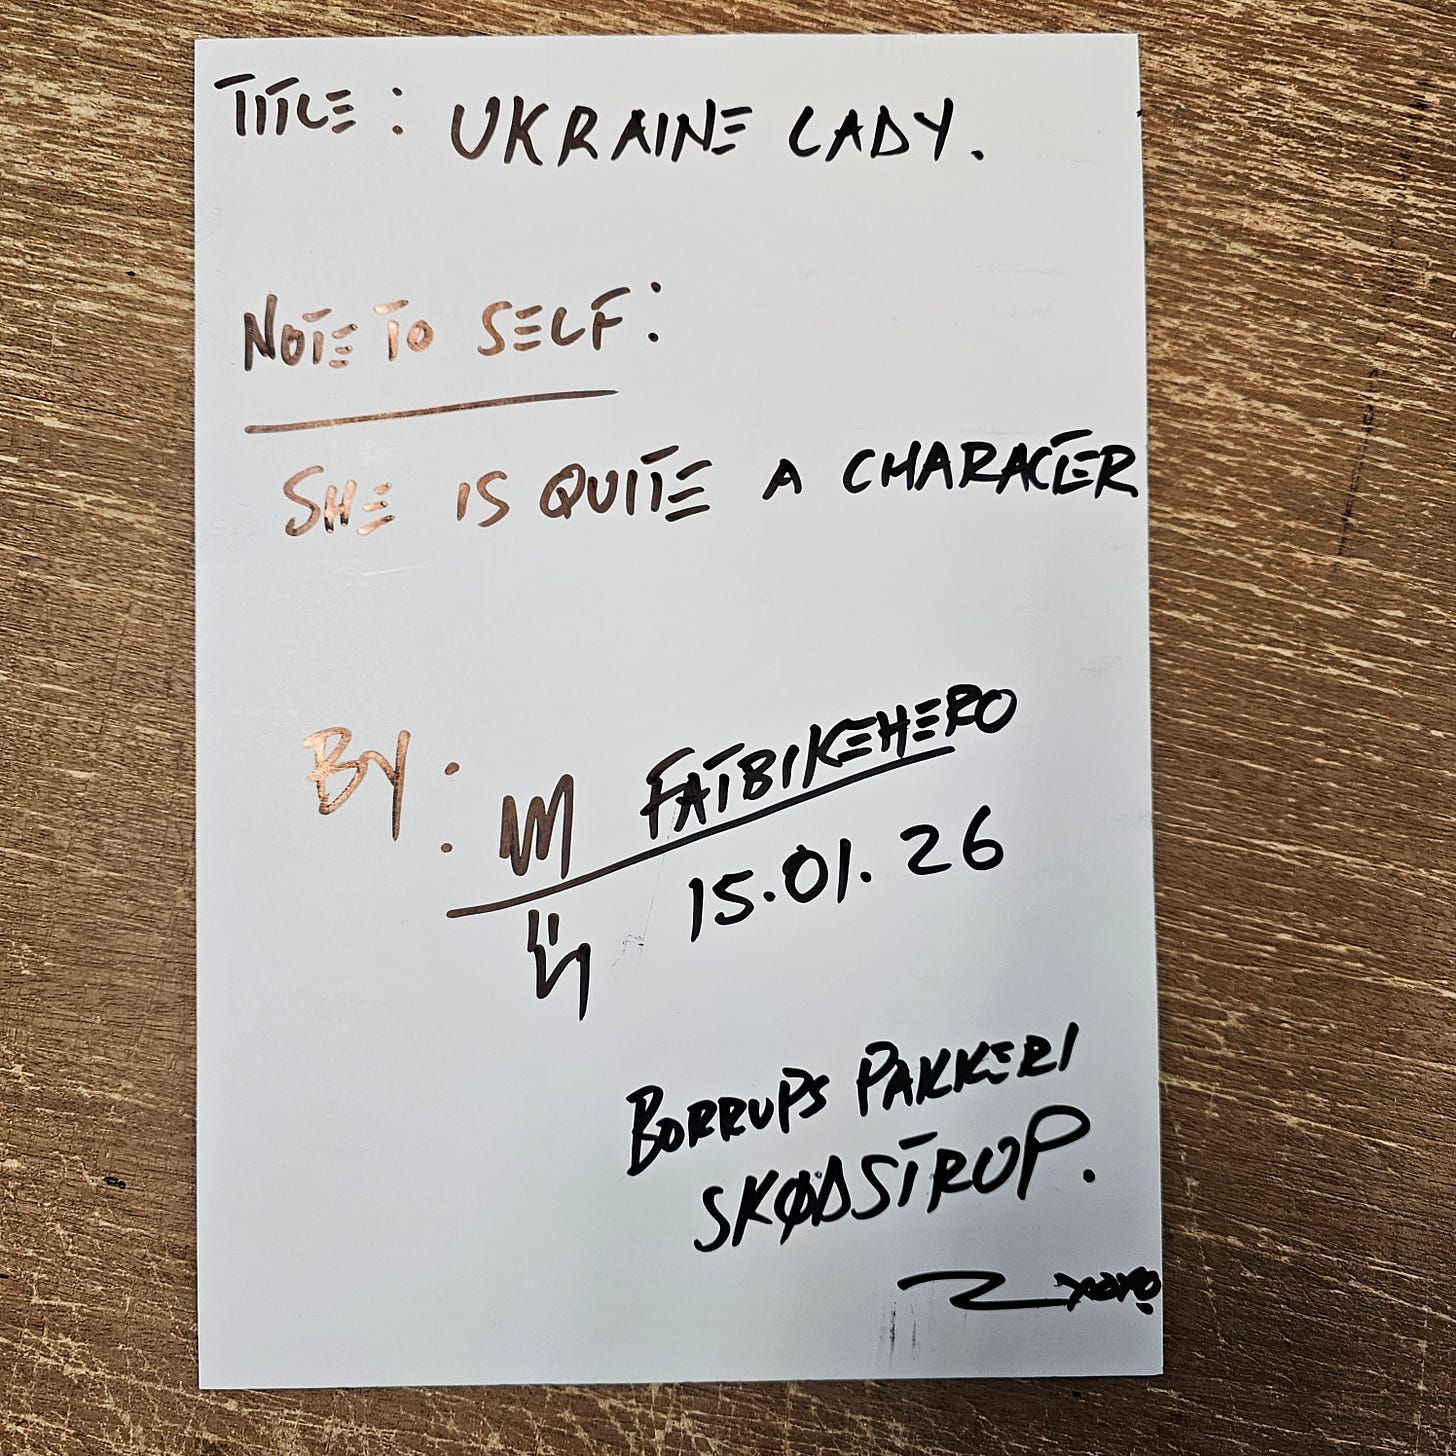 TITLE: UKRAINE LADY.
NOTE TO SELF:
SHE IS QUITE A CHARACTER
BY: M FATBIKEHERO
15.01.26
BORRUPS PAKKERI
SKØDSTROP.
XOXO